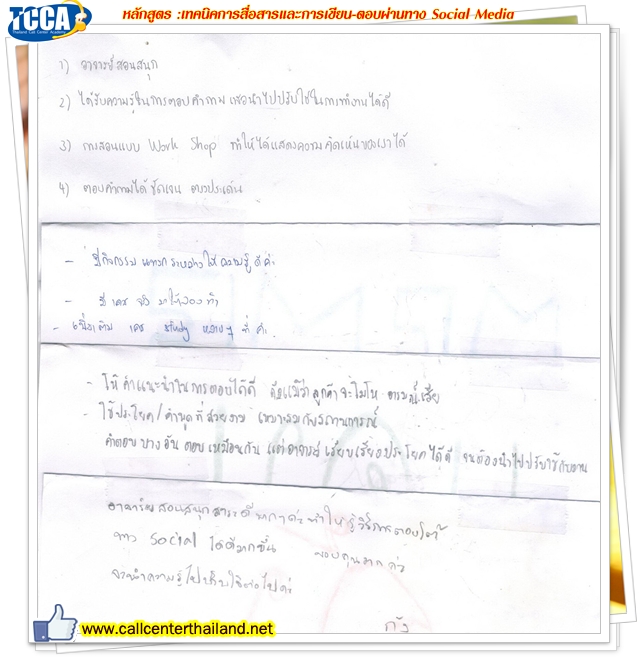 TCCA
Thailand Call Center Academy
หลักสูตร :เทคนิคการสื่อสารและการเขียน-ตอบผ่านทาง Social Media
1) อาจารย์สอนสนุก
2) ได้รับความรู้ในการตอบคำถาม และนำไปปรับใช้ในการทำงานได้ดี
3) การสอนแบบ Work Shop ทำให้ได้แสดงความคิดเห็นของเราได้
4) ตอบคำถามได้ชัดเจน ตรงประเด็น
- มีกิจกรรม ระหว่าง ให้ความรู้ ดีค่ะ
- มี เคส จริง มาให้ลองทำ
- เพิ่มเติม เคส study หลายๆ ที่ ค่ะ
- ให้คำแนะนำในการตอบได้ดี ถึงแม้ว่าลูกค้าจะโมโห อารมณ์เสีย
- ใช้ประโยค/คำพูดที่สวยงาม เหมาะสมกับสถานการณ์
คำตอบบางอันตอบเหมือนกัน แต่อาจารย์เรียบเรียงประโยคได้ดี จนต้องนำไปปรับใช้กับงาน
อาจารย์สอนสนุกสาระดีมากๆค่ะทำให้รู้วิธีการตอบโต้
ทาง Social ได้ดีมากขึ้น ขอบคุณมากค่ะ
จะนำความรู้ไปปรับใช้ต่อไปค่ะ
www.callcenterthailand.net